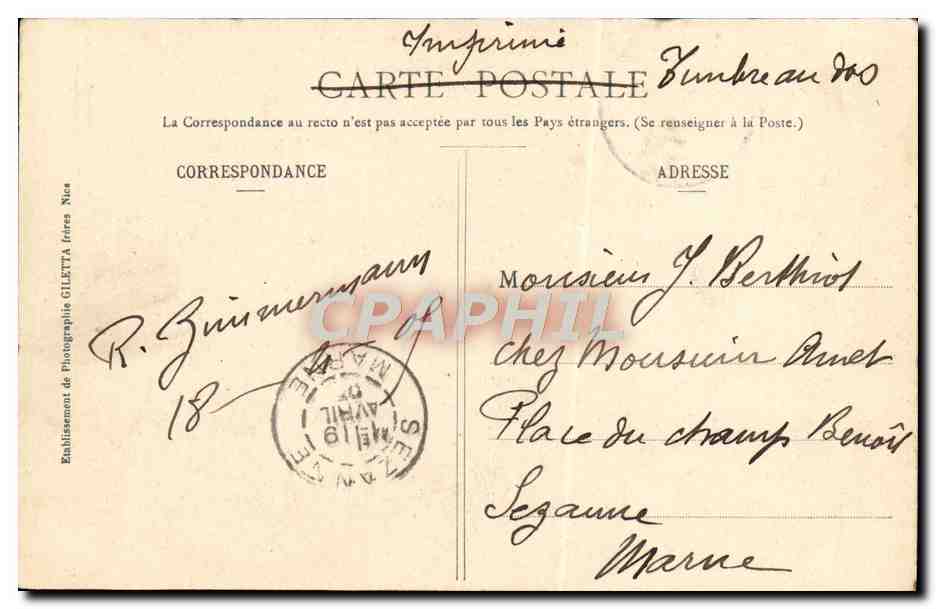 Imprimé
CARTE POSTALE
Timbre au dos
La Correspondance au recto n'est pas acceptée par tous les Pays étrangers. (Se renseigner à la Poste.)
CORRESPONDANCE
ADRESSE
Etablissement de Photographie GILETTA frères Nice
R. Zimmermann
18-4-05
SEZANNE
MARNE
19
AVRIL
05
CPAPHIL
Monsieur J. Berthiot
chez Monsieur Amet
Place du champ Benoît
Sezanne
Marne